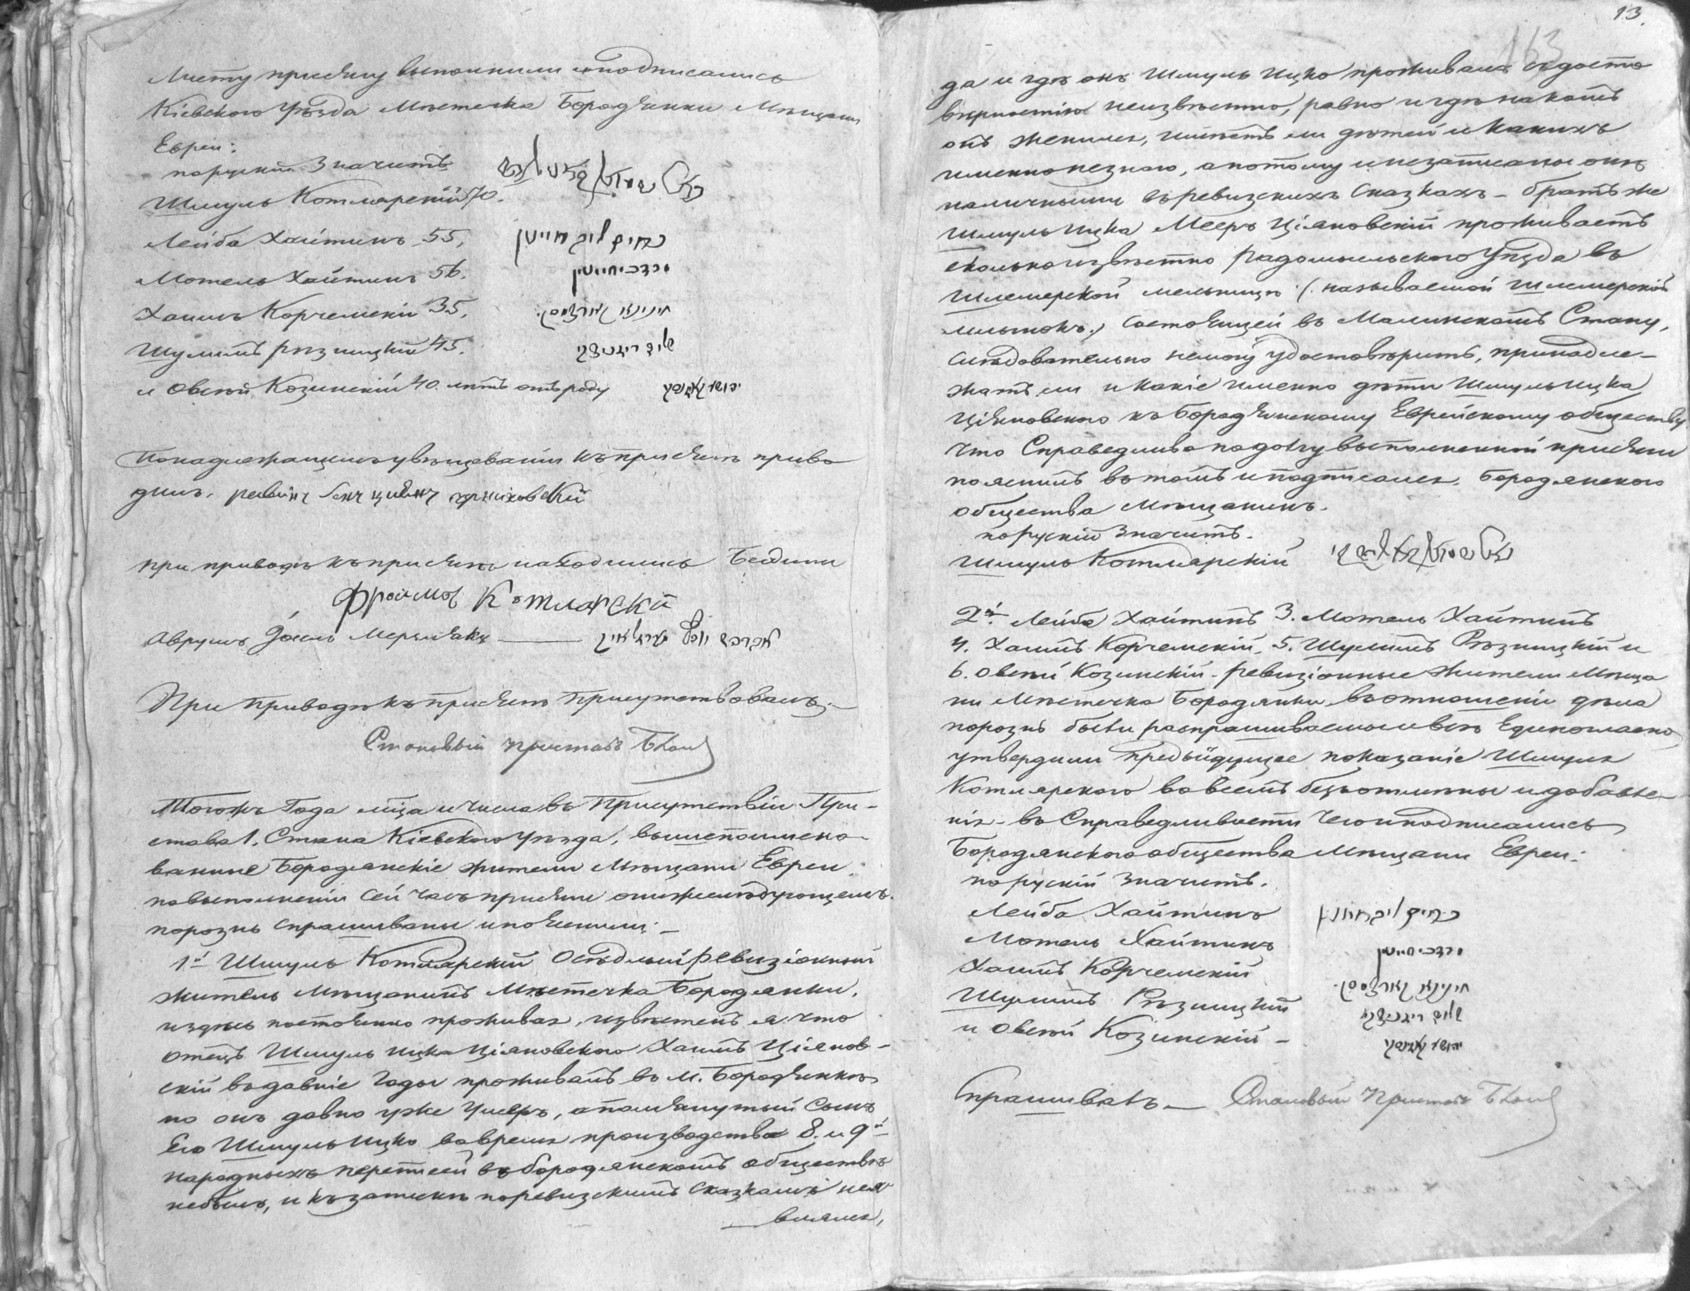 Листу присягу выполнили и подписались
Кіевского уѣзда Мѣстечка Бородянки Мѣщани
Евреи:
по рускій значитъ
Шмуль Котлярскій 70.
Лейба Хайтинъ 55,
Мотель Хайтинъ 56.
Хаимъ Корчемскій 35,
Шулимъ Рѣзницкій 45.
и Овсѣй Козинскій 40 лѣтъ отъ роду
По надлежащимъ увѣщеваніи къ присягѣ приво
дилъ. равинъ
при приводѣ къ присягѣ находились
Фроимов Котлярскй
Аврумъ Іосель
При приводѣ къ присягѣ присутствовалъ:
Становый приставъ
Тогожъ года м-ца и числа въ присутствіи При-
става 1. Стана Кіевского уѣзда, вышепоимено-
ванные Бородянскіе жители Мѣщани Евреи,
по выполненіи сей часъ присяги о нижеслѣдующемъ
порознь спрашиваны и пояснили:
1й Шмуль Котлярскій осѣдлый ревизіонный
житель мѣщанинъ Мѣстечка Бородянки,
издѣсь постоянно проживая, извѣстенъ я что
отецъ Шмуль Ицка Ціяновского Хаимъ Ціянов-
скій въ давніе годы проживалъ въ м. Бородянкѣ
но онъ давно уже умеръ, а помянутый сынъ
Его Шмуль Ицко во время производства 8. и 9й
народныхъ переписей въ бородянскомъ обществѣ
небылъ, и къ записки по ревизскимъ сказкамъ нея
влялся,
13.
163
да и гдѣ онъ Шмуль Ицко проживалъ съ досто
вѣрностію неизвѣстно, равно и гдѣ на комъ
онъ женился, имѣетъ ли дѣтей и какихъ
именно незнаю, а потому и незаписаны онѣ
наличными въ ревизскихъ сказкахъ – братъ же
Шмуль Ицка Мееръ Ціяновскій проживаетъ
сколько извѣстно Радомысльского уѣзда въ
Шлемерской мельницѣ (называемой Шлемерскій
млынокъ,) состоящей въ Малинскомъ Стану,
слѣдовательно немогу удостовѣрить, принадле-
жатъ ли и какіе именно дѣти Шмуль Ицка
Ціяновского къ Бородянскому Еврейскому обществу
Что Справедливо по долгу выполненной присяги
пояснилъ въ томъ и подписался. Бородянского
общества Мѣщанинъ.
по рускій значитъ.
Шмуль Котлярскій
2й Лейба Хайтинъ 3. Мотель Хайтинъ
4. Хаимъ Корчемскій, 5. Шулимъ Рѣзницкій и
6. Овсѣй Козинскій – ревизіонные жители Мѣща
ни Мѣстечка Бородянки, въ отношеніи дѣла
порознь были распрашиваемы и всѣ единогласно
утвердили предъидущее показаніе Шмуля
Котлярского во всемъ безъ отмѣны и добавле-
нія – въ Справедливости чего и подписались
Бородянского общества Мѣщани Евреи:
по рускій значитъ.
Лейба Хайтинъ
Мотель Хайтинъ
Хаимъ Корчемскій
Шулимъ Рѣзницкій
и Овсѣй Козинскій –
Спрашивалъ — Становый Приставъ